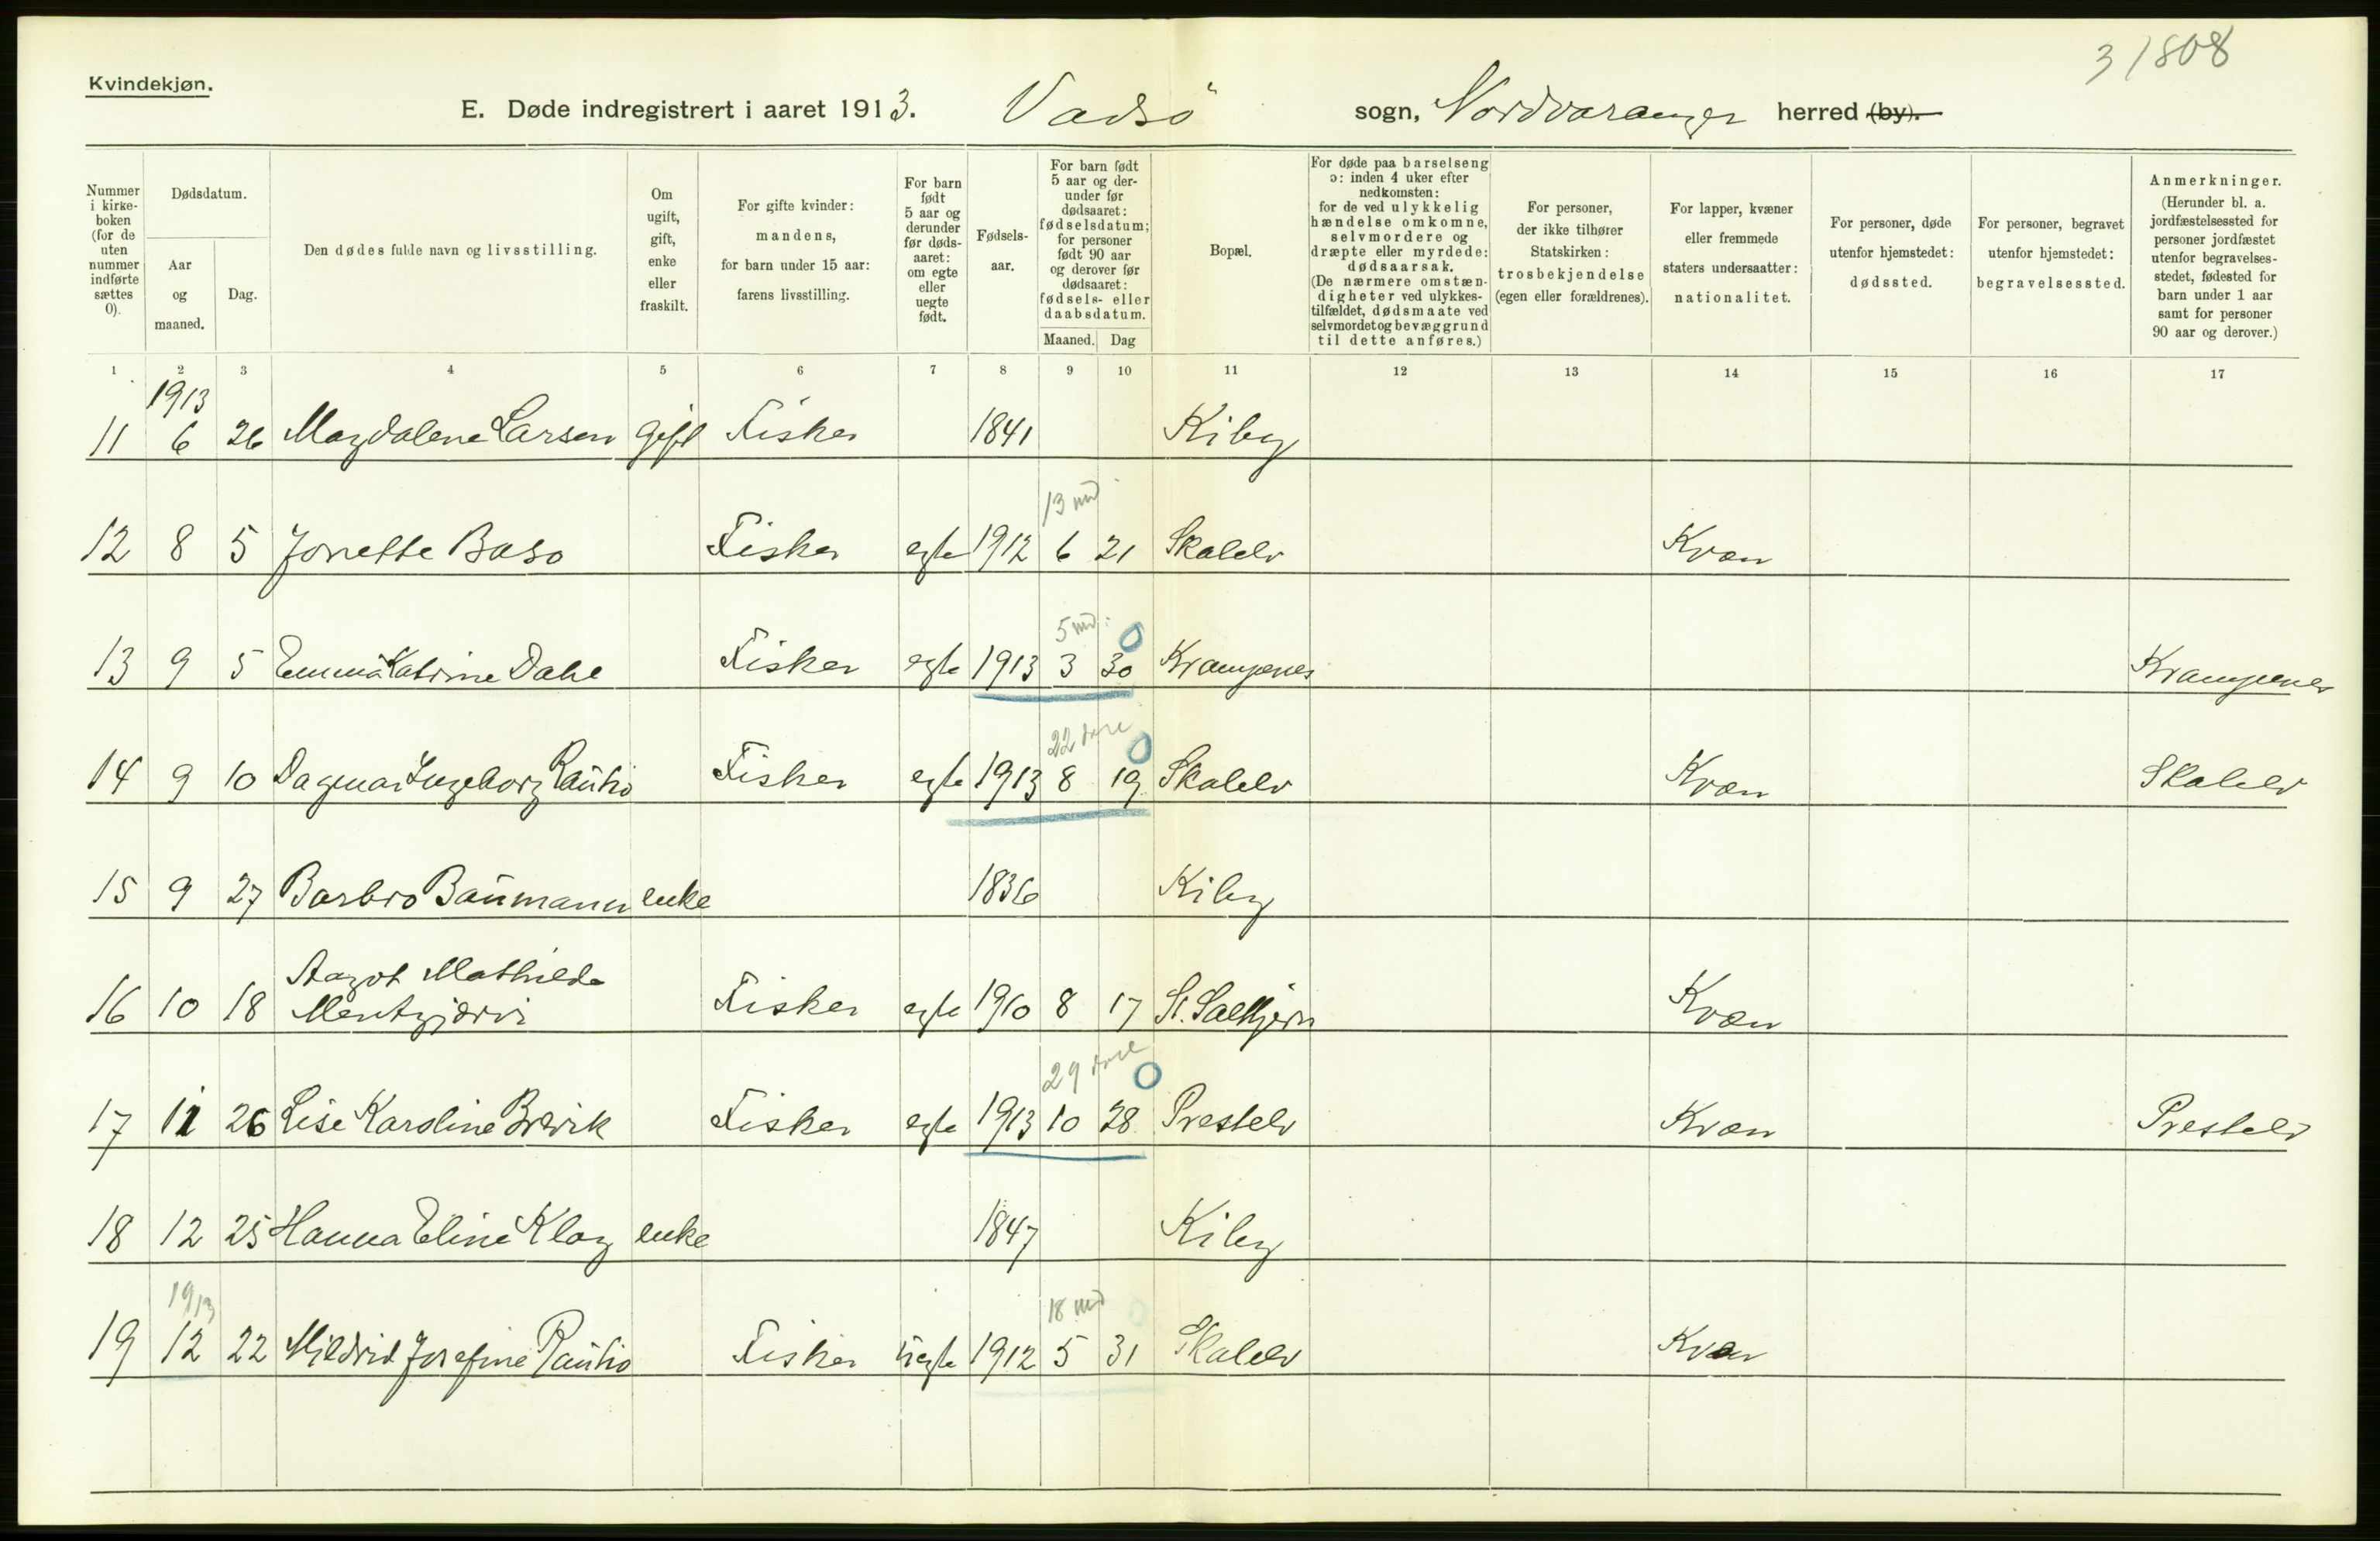 31808
Kvindekjøn.
E. Døde indregistrert i aaret 1913. Vadsø sogn, Nordvaranger herred (by).
Nummer i kirke-boken (for de uten nummer indførte sættes 0).
Dødsdatum.
Aar og maaned.
Dag.
Den dødes fulde navn og livsstilling.
Om ugift, gift, enke eller fraskilt.
For gifte kvinder: mandens, for barn under 15 aar: farens livsstilling.
For barn født 5 aar og derunder før døds-aaret: om egte eller uegte født.
Fødsels-aar.
For barn født 5 aar og der-under før dødsaaret: fødselsdatum; for personer født 90 aar og derover før dødsaaret: fødsels- eller daabsdatum.
Maaned. Dag
Bopæl.
For døde paa barselseng ɔ: inden 4 uker efter nedkomsten: for de ved ulykkelig hændelse omkomne, selvmordere og dræpte eller myrdede: dødsaarsak. (De nærmere omstæn-digheter ved ulykkes-tilfældet, dødsmaate ved selvmordet og bevæggrund til dette anføres.)
For personer, der ikke tilhører Statskirken: trosbekjendelse (egen eller forældrenes).
For lapper, kvæner eller fremmede staters undersaatter: nationalitet.
For personer, døde utenfor hjemstedet: dødssted.
For personer, begravet utenfor hjemstedet: begravelsessted.
Anmerkninger. (Herunder bl. a. jordfæstelsessted for personer jordfæstet utenfor begravelses-stedet, fødested for barn under 1 aar samt for personer 90 aar og derover.)
1 2 3 4 5 6 7 8 9 10 11 12 13 14 15 16 17
1913
11 6 26 Magdalene Larsen gift Fisker 1841 Kiby
13 md
12 8 5 Jonette Baso Fisker egte 1912 6 21 Skalelv Kvæn
5 md. 0
13 9 5 Emma Katrine Dahl Fisker egte 1913 3 30 Krampenes Krampenes
22 0
14 9 10 Dagmar Ingeborg Rautio Fisker egte 1913 8 19 Skalelv Kvæn Skalelv
15 9 27 Barbro Baumann enke 1836 Kiby
Aagot Mathilde
16 10 18 Mentyjærvi Fisker egte 1910 8 17 Kvæn
29 0
17 11 26 Lise Karoline Brævik Fisker egte 1913 10 28 Prestelv Kvæn Prestelv
18 12 25 Hanna Eline Klog enke 1847 Kiby
1913 18 md
19 12 22 Hildrid Josefine Rautio Fisker uegte 1912 5 31 Skalelv Kvæn